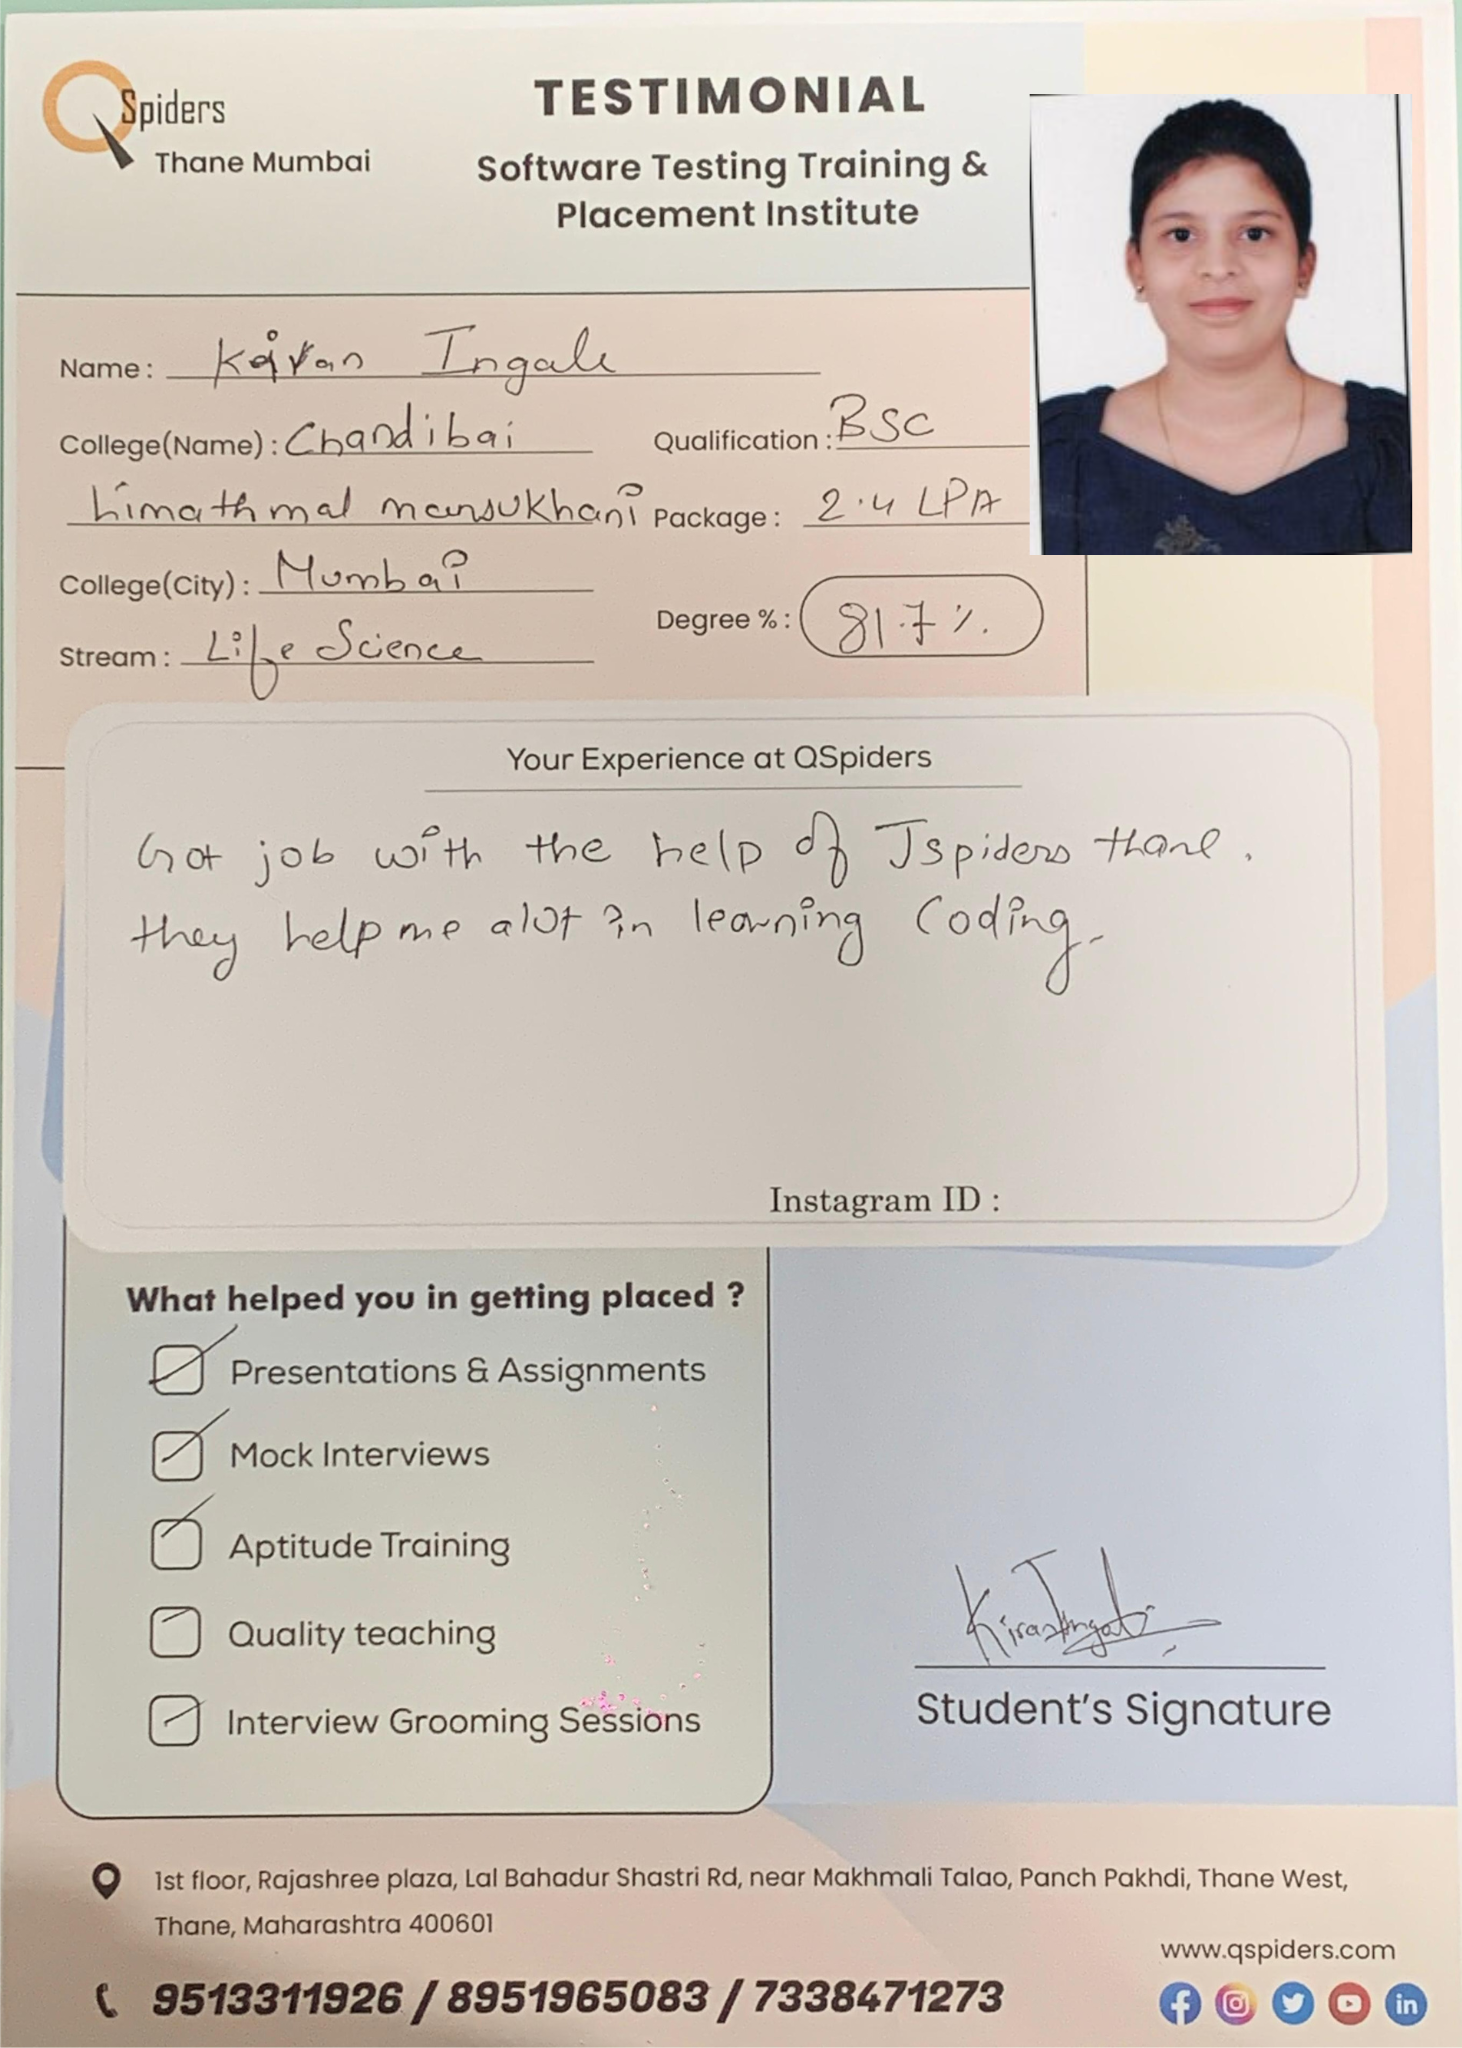 QSpiders
Thane Mumbai
TESTIMONIAL
Software Testing Training &
Placement Institute
Name : Kiran Ingale
College(Name) : Chandibai
Qualification : BSC
himathmal mansukhani
Package : 2.4 LPA
College(City) : Mumbai
Degree % : 81.7 %.
Stream : Life Science
Your Experience at QSpiders
Got job with the help of Jspiders thane.
they help me alot in learning Coding.
Instagram ID :
What helped you in getting placed ?
Presentations & Assignments
Mock Interviews
Aptitude Training
Quality teaching
Interview Grooming Sessions
Kiran Ingale
Student's Signature
1st floor, Rajashree plaza, Lal Bahadur Shastri Rd, near Makhmali Talao, Panch Pakhdi, Thane West,
Thane, Maharashtra 400601
www.qspiders.com
9513311926 / 8951965083 / 7338471273